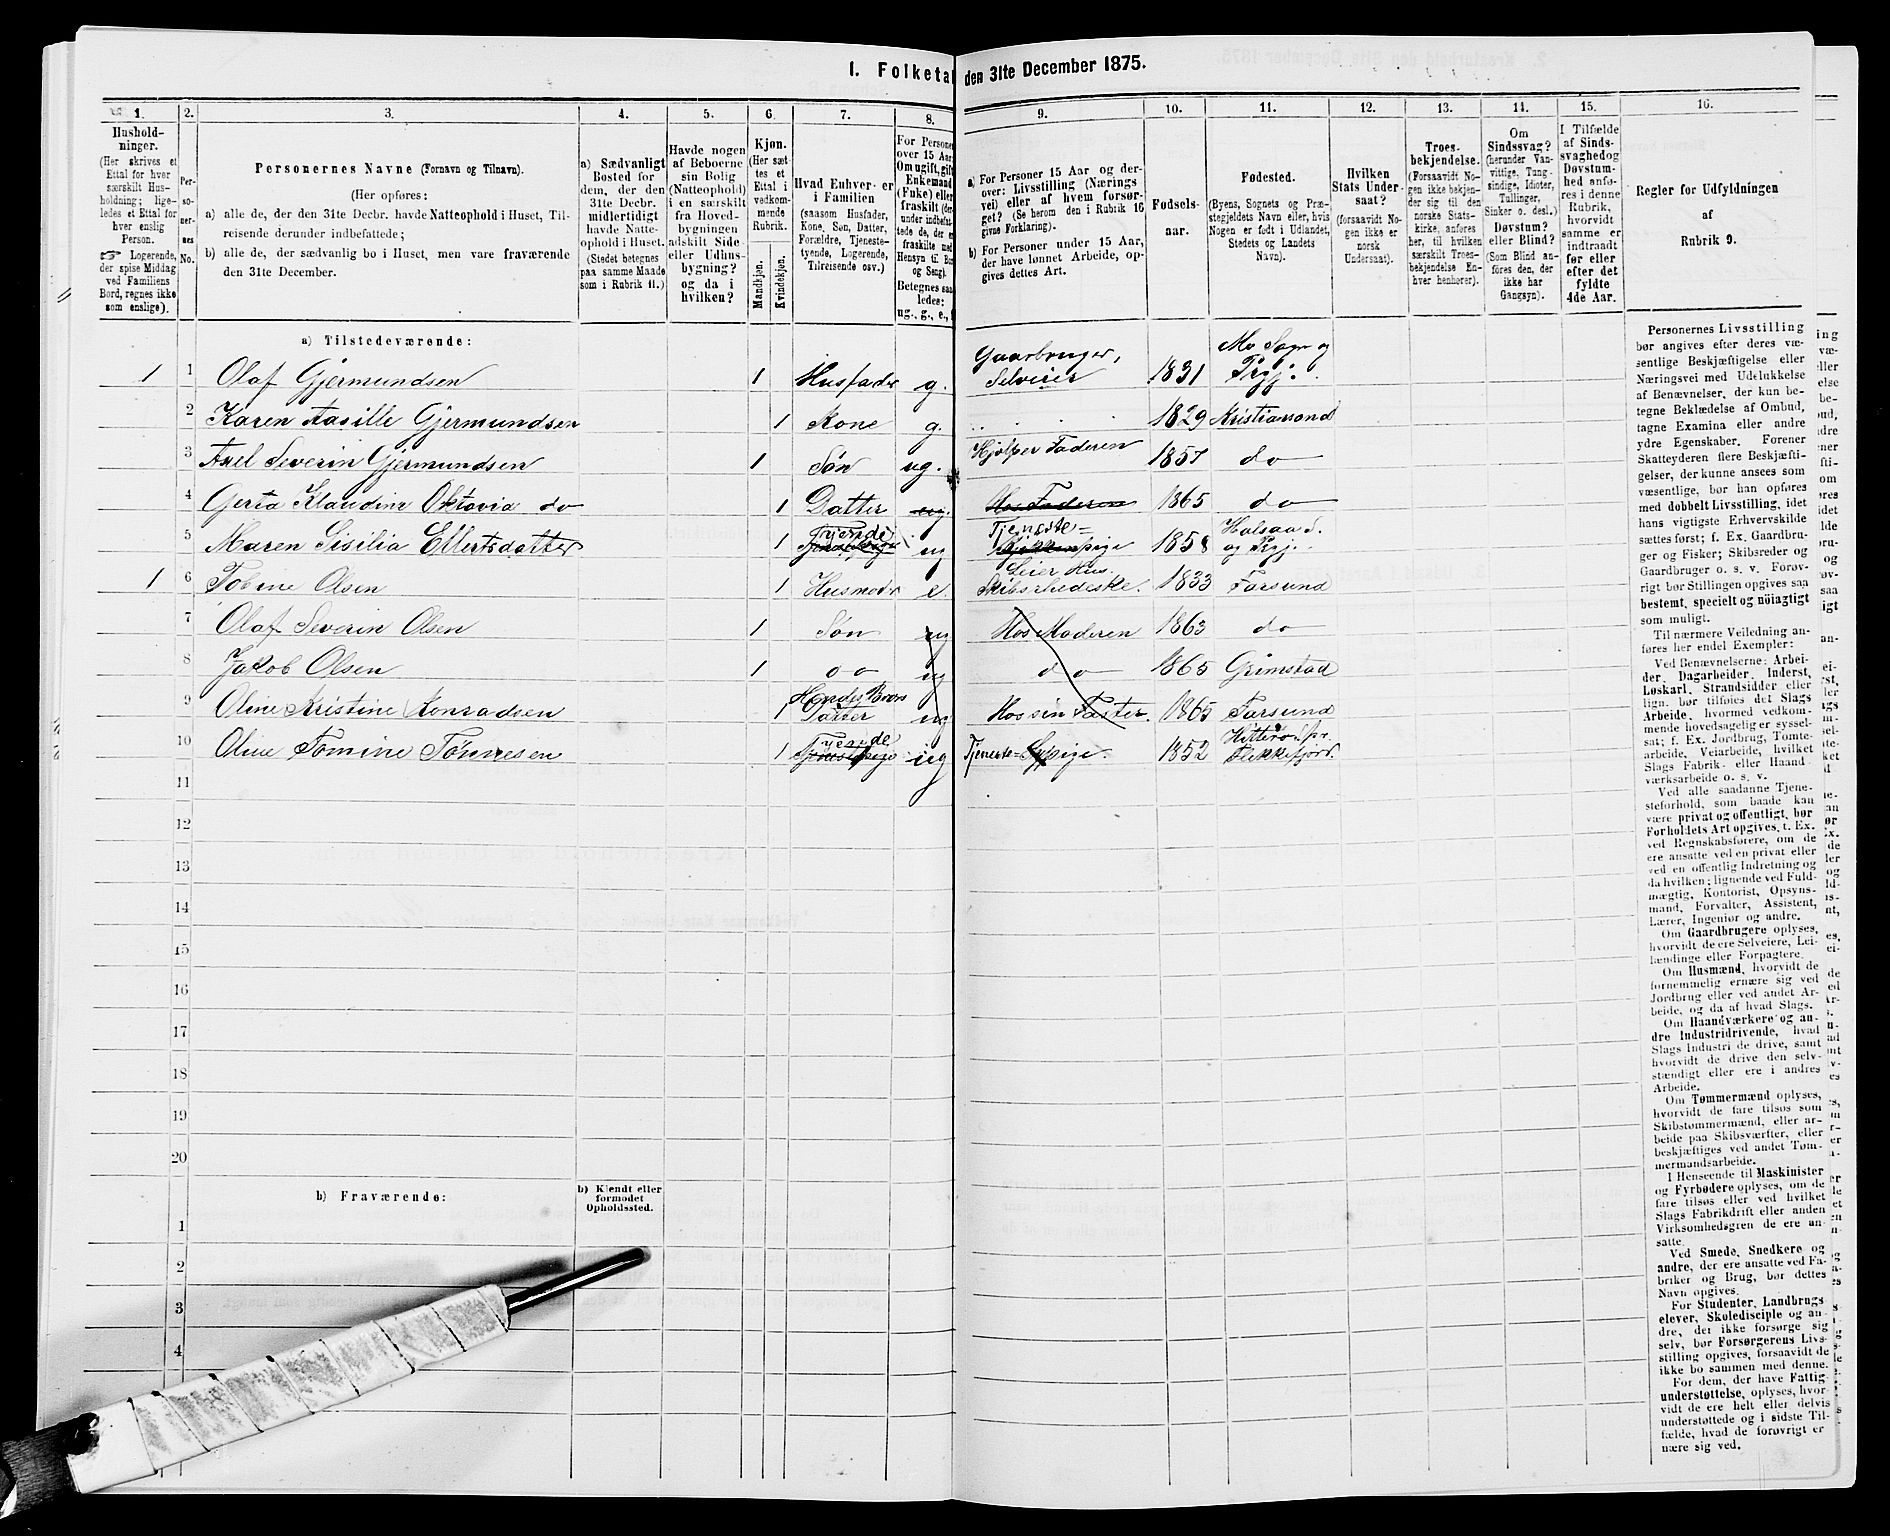 I. Folketal den 31te December 1875.
1. 2. 3. 4. 5. 6. 7. 8. 9. 10. 11. 12. 13. 14. 15. 16.
Hushold-
ninger.
(Her skrives et
Ettal for hver
særskilt Hus-
holdning; lige-
ledes et Ettal for
hver enslig
Person.
☞ Logerende,
der spise Middag
ved Familiens
Bord, regnes ikke
som enslige).
Per-
so-
ner-
nes
No.
Personernes Navne (Fornavn og Tilnavn).
(Her opføres:
a) alle de, der den 31te Decbr. havde Natteophold i Huset, Til-
reisende derunder indbefattede;
b) alle de, der sædvanlig bo i Huset, men vare fraværende
den 31te December.
a) Sædvanligt
Bosted for
dem, der den
31te Decbr.
midlertidigt
havde Natte-
ophold i Huset.
(Stedet betegnes
paa samme Maade
som i Rubrik 11.)
Havde nogen
af Beboerne
sin Bolig
(Natteophold)
i en særskilt
fra Hoved-
bygningen
adskilt Side-
eller Udhus-
bygning?
og da i
hvilken?
Kjøn.
(Her sæt-
tes et
Ettal i
vedkom-
mende
Rubrik.
Mandkjøn.
Kvindekjøn.
Hvad Enhver er
i Familien
(saasom Husfader,
Kone, Søn, Datter,
Forældre, Tjeneste-
tyende, Logerende,
Tilreisende osv.)
For Persone
over 15 Aar
Om ugift, gift
Enkemand
(Enke) eller
fraskilt (der-
under indbefat-
tede de, der er
fraskilte med
Hensyn til Bo
og Seng).
Betegnes saa-
ledes:
ug., g., e.,
a) For Personer 15 Aar og der-
over: Livsstilling (Nærings
vei) eller af hvem forsør-
get? (Se herom den i Rubrik 16
givne Forklaring).
b) For Personer under 15 Aar,
der have lønnet Arbeide, op-
gives dettes Art.
Fødsels-
aar.
Fødested.
(Byens, Sognets og Præ-
stegjeldets Navn eller, hvis
Nogen er født i Udlandet,
Stedets og Landets
Navn).
Hvilken
Stats Under-
saat?
(forsaavidt No-
gen ikke er
norsk
Undersaat).
Troes-
bekjendelse.
(Forsaavidt No-
gen ikke bekjen-
der sig til den
norske Stats-
kirke, anføres
her, til hvilken
særskilt Troes-
bekjendelse En-
hver henhører).
Om
Sindssvag?
(herunder Van-
vittige, Tung-
sindige, Idioter,
Tullinger,
Sinker o. desl.)
Døvstum?
eller Blind?
(Som Blind an-
føres den, der
ikke har
Gangsyn).
I Tilfælde
af Sinds-
svaghed og
Døvstum-
hed anfø-
res i denne
Rubrik,
hvorvidt
samme er
indtraadt
før eller
efter det
fyldte
4de Aar.
Regler for Udfyldningen
af
Rubrik 9.
a) Tilstedeværende:
1 1 Olaf Gjermundsen 1 Husfader g. Gaarbruger, Selveier 1831 Mo Sogn og Prgj.
2 Karen Aasille Gjermundsen 1 Kone g. 1829 Kristiansand
3 Axel Severin Gjermundsen 1 Søn ug. Hjælper Faderen 1857 do
4 Gerta Klaudine Oktovia do 1 Datter ug Hos Faderen 1865 do
5 Maren Sisilia Ellertsdatter 1 Tyende ug Tjeneste= pige 1858 Halsaa S. og Prgj.
1 6 Tobine Olsen 1 Husmoder e. Leier Hus. 1833 Farsund
7 Olaf Severin Olsen 1 Søn ug Hos Moderen 1863 do
8 Jakob Olsen 1 do ug do 1865 Grimstad
9 Oline Kristine Konradsen 1 Datter ug Hos sin Faster 1865 Farsund
10 Oline Tomine Tönnesen 1 Tyende ug Tjeneste= pige. 1852 Hitterø Flekkefjord.
11
12
13
14
15
16
17
18
19
20
b) Fraværende:
b) Kjendt eller
formodet
Opholdssted.
1
2
3
4
Personernes Livsstilling
bør angives efter deres væ-
sentlige Beskjæftigelse eller
Næringsvei med Udelukkelse
af Benævnelser, der kun be-
tegne Beklædelse af Ombud,
tagne Examina eller andre
ydre Egenskaber. Forener
Skatteyderen flere Beskjæfti-
gelser, der kunne ansees som
væsentlige, bør han opføres
med dobbelt Livsstilling, idet
hans vigtigste Erhvervskilde
sættes først; f. Ex. Gaardbru-
ger og Fisker; Skibsreder og
Gaardbruger o. s. v. Forøv-
rigt bør Stillingen opgives saa
bestemt, specielt og nöiagtigt
som muligt.
Til nærmere Veiledning an-
føres her endel Exempler:
Ved Benævnelserne: Arbei-
der, Dagarbeider, Inderst,
Løskarl, Strandsidder eller
lign. bør tilføies det Slags
Arbeide, hvormed vedkom-
mende hovedsagelig er syssel-
sat; f. Ex. Jordbrug, Tomte-
arbeide, Veiarbeide, hvilket
Slags Fabrik- eller Haand
værksarbeide o. s. v.
Ved alle saadanne Tjene-
steforhold, som baade kan
være privat og offentligt, bør
Forholdets Art opgives, t. Ex.
ved Regnskabsførere, om de
ere ansatte ved en privat eller
ved en offentlig Indretning og
da hvilken; lignende ved Fuld-
mægtig, Kontorist, Opsyns-
mand, Forvalter, Assistent,
Lærer, Ingeniør og andre.
Om Gaardbrugere oplyses,
hvorvidt de ere Selveiere, Lei-
lændinge eller Forpagtere.
Om Husmænd, hvorvidt de
fornemmelig ernære sig ved
Jordbrug eller ved andet Ar-
beide, og da af hvad Slags.
Om Haandværkere og an-
dre Industridrivende, hvad
Slags Industri de drive, samt
hvorvidt de drive den selv-
stændigt eller ere i andres
Arbeide.
Om Tømmermænd oplyses,
hvorvidt de fare tilsøs som
Skibstømmermænd, eller ar-
beide paa Skibsværfter, eller
beskjæftiges ved andet Tøm-
mermandsarbeide.
I Henseende til Maskinister
og Fyrbødere oplyses, om de
fare tilsøs eller ved hvilket
Slags Fabrikdrift eller anden
Virksomhedsgren de ere an-
satte.
Ved Smede, Snedkere og
andre, der ere ansatte ved Fa-
briker og Brug, bør dettes
Navn opgives.
For Studenter, Landbrugs
elever, Skoledisciple og an-
dre, der ikke forsørge sig
selv, bør Forsørgerens Livs-
stilling opgives, forsaavidt de
ikke bo sammen med denne.
For dem, der have Fattig
understøttelse, oplyses, hvor-
vidt de ere helt eller delvis
understøttede og i sidste Til-
fælde, hvad de forøvrigt er
nære sig ved.